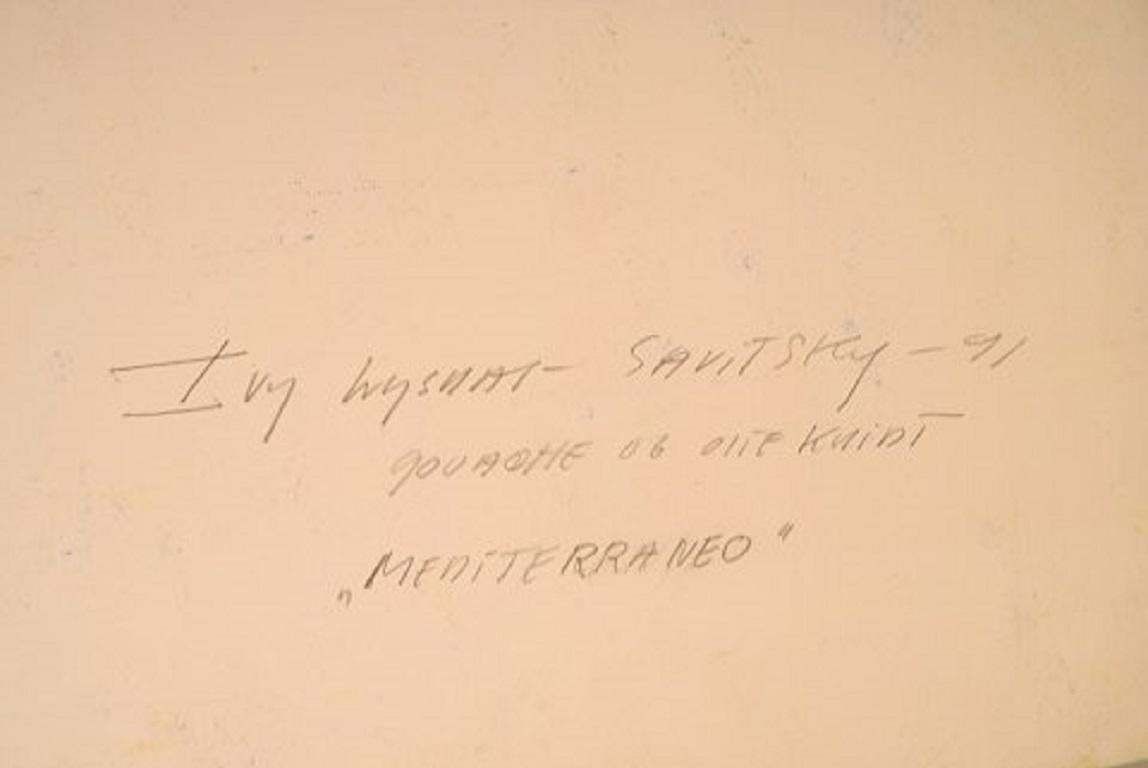 Ivy Lysdal - SAVITSKy - 91
GOUACHE OG OLIE KRIDT
„MEDITERRANEO"